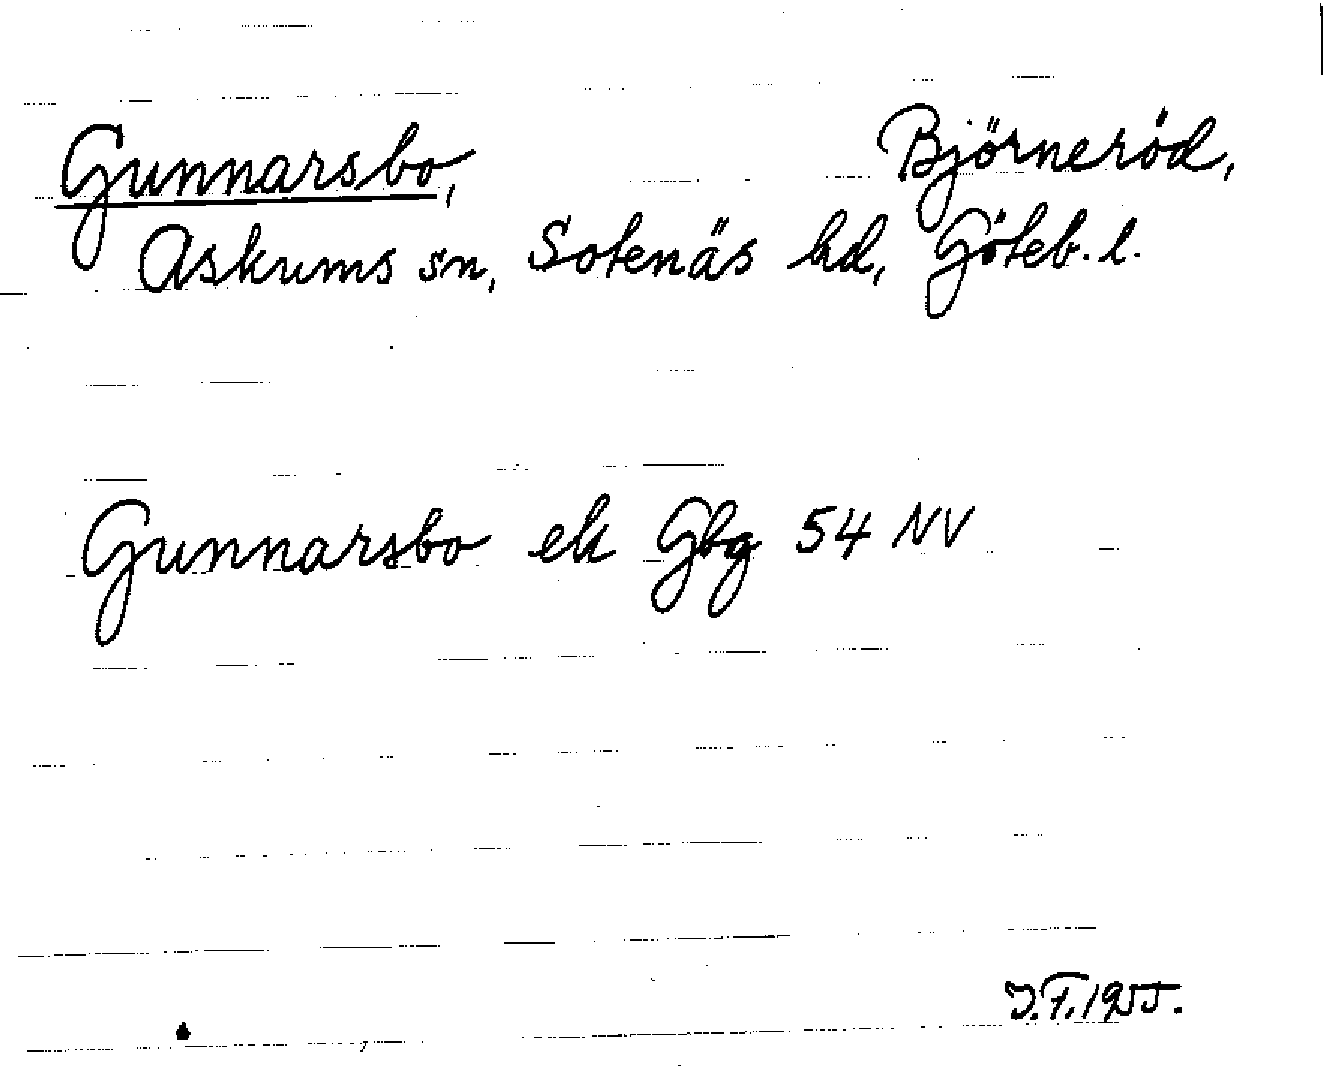 Gunnarsbo, Björneröd,
Askums sn, Sotenäs hd, Göteb. l.
Gunnarsbo ek Gbg 54 NV
J.F. 1955.